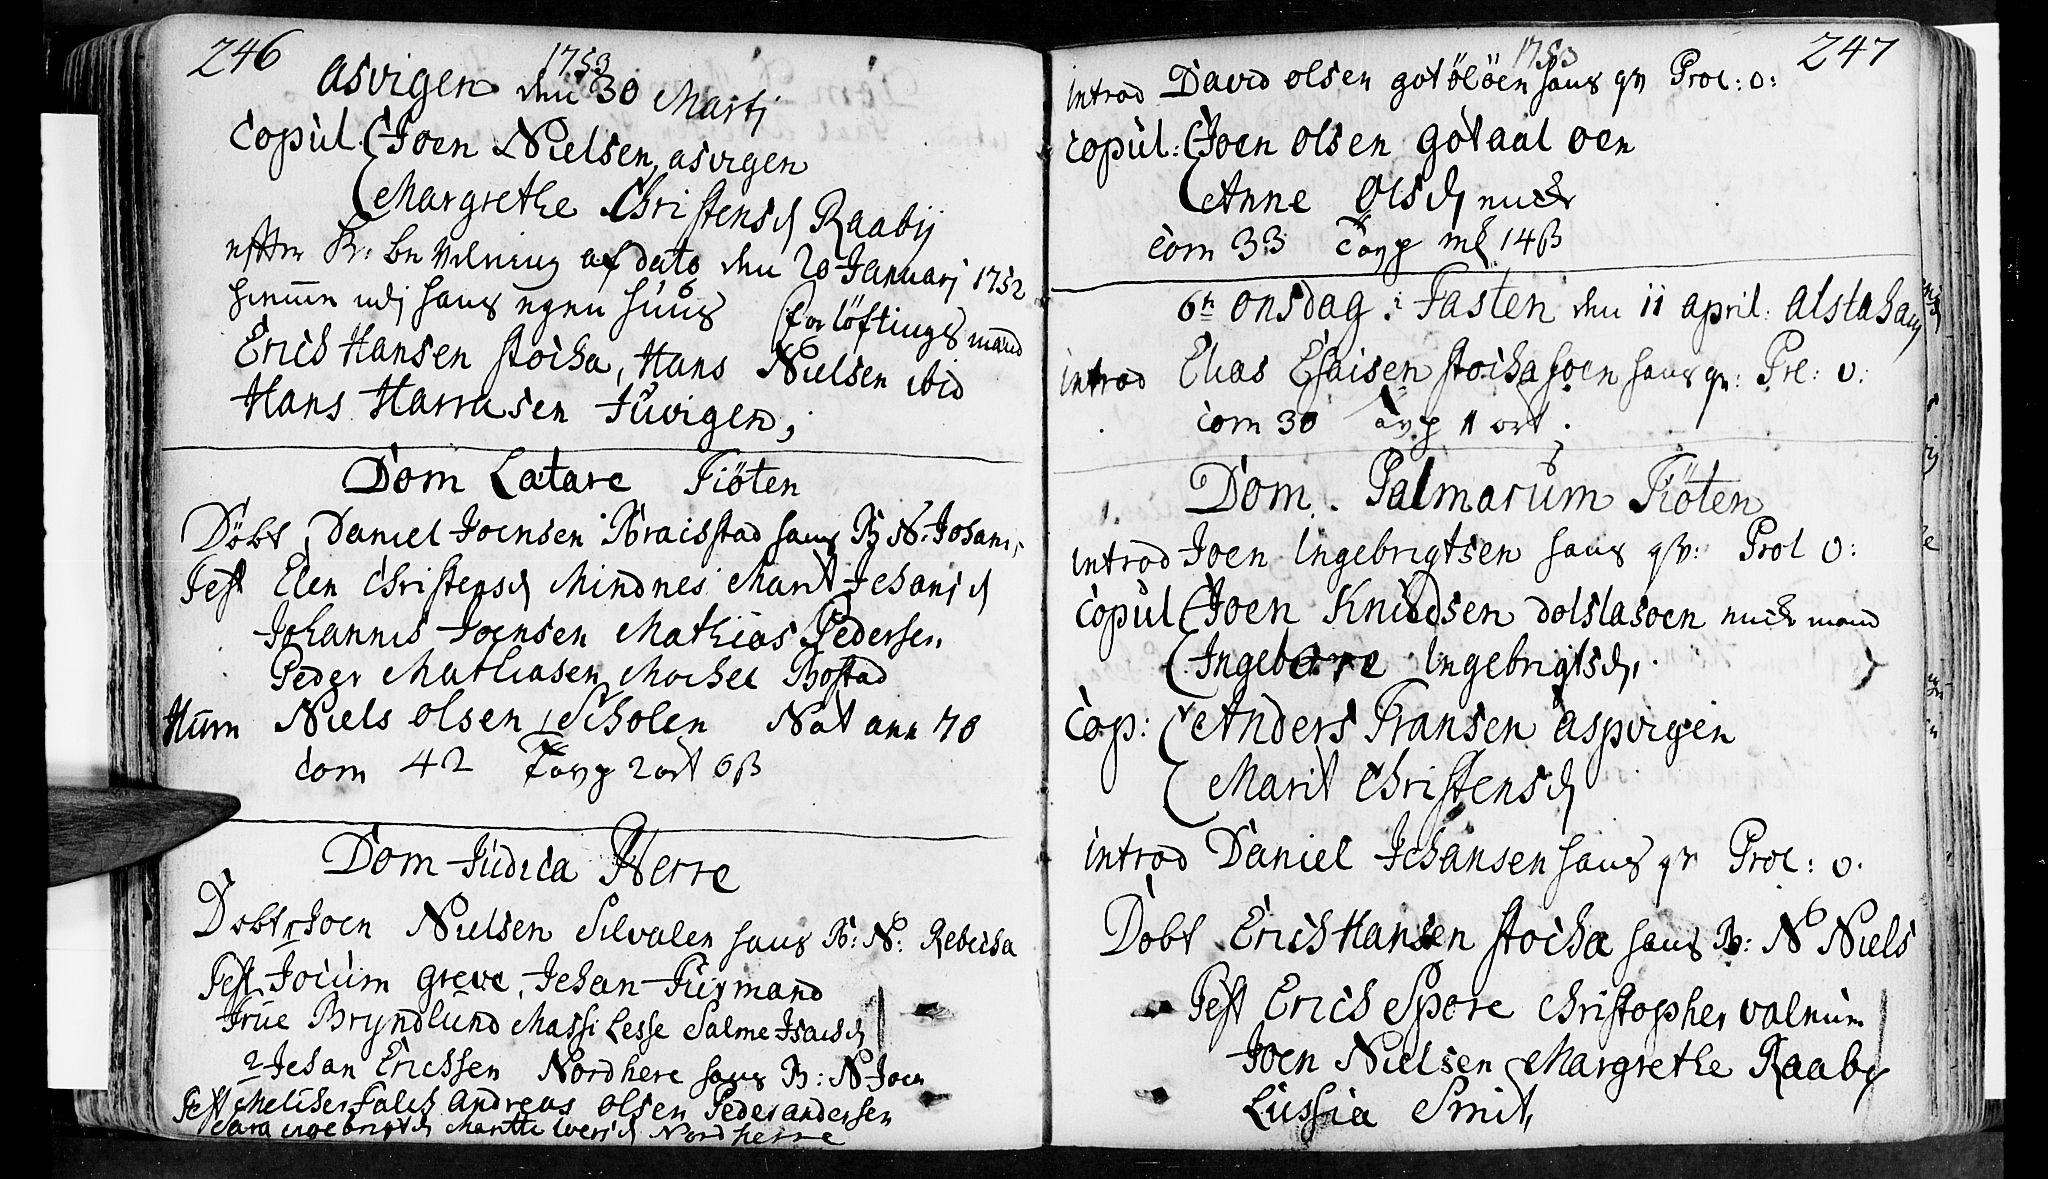 246
1753
asvigen den 30 Martj
Copul. Joen Nielsen asvigen
Margrethe Christensd Raabÿ
efter K: bevilning af dato den 20 Januarj 1752
hiemme udj hans egen hüüs forlöftings mænd
Erich Hansen stocka, Hans Nielsen ibid
Hans Hansen Tüvigen,
Dom Lætare Tiöten
Döbt, Daniel Joensen Braicstad hans B N. Johans
Test Elen Christensd Mindnes Marit Johansd
Johannes Joensen Mathias Pedersen
Peder Mathiasen Mochel Bostad
Hum Niels olsen Scholen Nat ann 70
Com 42 Tavf 2 ort 6 ß
Dom Judica Herre
Döbt 1 Joen Nielsen Silvalen hans B: N: Rebecha
Test Jocum Greve, Johan Furmand
True Bryndlund Massi Lesse Salme Isacsd
2 Johan Ericssen Nordhere hans B: N Joen
Test Melcher Falch Andreas olsen Peder andersen
Sara ingebrigtsd Marthe iversd Nordherre
1753
247
introd David olsen gotölöen hans qv Prol: o:
Copul: Joen olsen gotaal oen
Anne Olsd
Com 33 Tavf 14 ß
6te onsdag i Fasten den 11 april. alstahaug
introd Elias Esaisen stochasoen hans qv: Prl: o:
Com 30 Tavf 1 ort.
Dom. Palmarum Tiöten
introd Joen Ingebrigtsen hans qv: Prol o:
Copul Joen Knudsen dolslasoen
Ingeborre Ingebrigtsd.
Cop: Anders Fransen aspvigen
Marit Christensd
introd Daniel Johansen hans qv Prol: o.
Döbt Erich Hansen stocka hans B: N Niels
Test Erich Spore Christopher valnum
Joen Nielsen Margrethe Raaby
Lussia Smit,